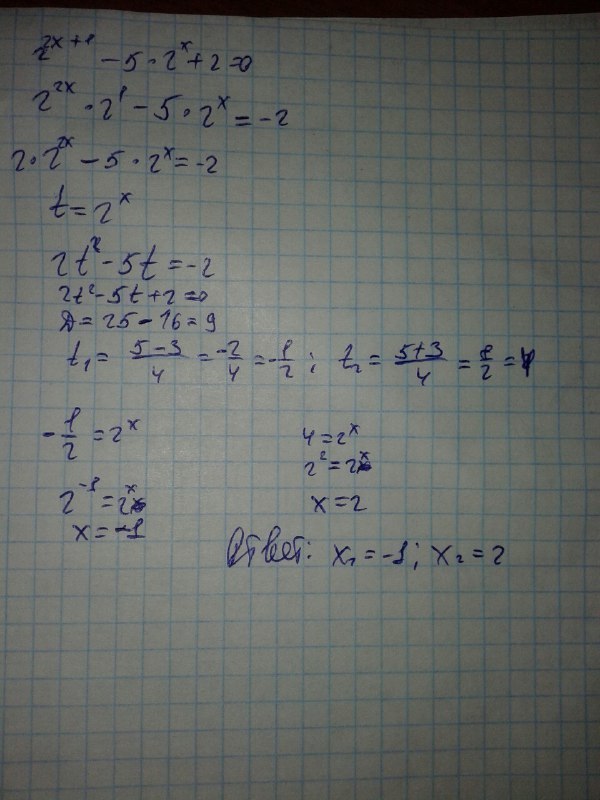 2^{2x+1} - 5 · 2^x + 2 = 0
2^{2x} · 2^1 - 5 · 2^x = -2
2 · 2^{2x} - 5 · 2^x = -2
t = 2^x
2t^2 - 5t = -2
2t^2 - 5t + 2 = 0
D = 25 - 16 = 9
t₁ = (5-3)/4 = -2/4 = -1/2 ; t₂ = (5+3)/4 = 8/2 = 4
-1/2 = 2^x
4 = 2^x
2^{-1} = 2^x
2^2 = 2^x
x = -1
x = 2
Ответ: x₁ = -1; x₂ = 2